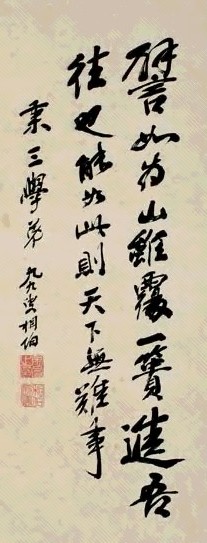 譬言如为山雖覆一簣進吾
往也能如此則天下無難事
秉三學弟 九九叟相伯